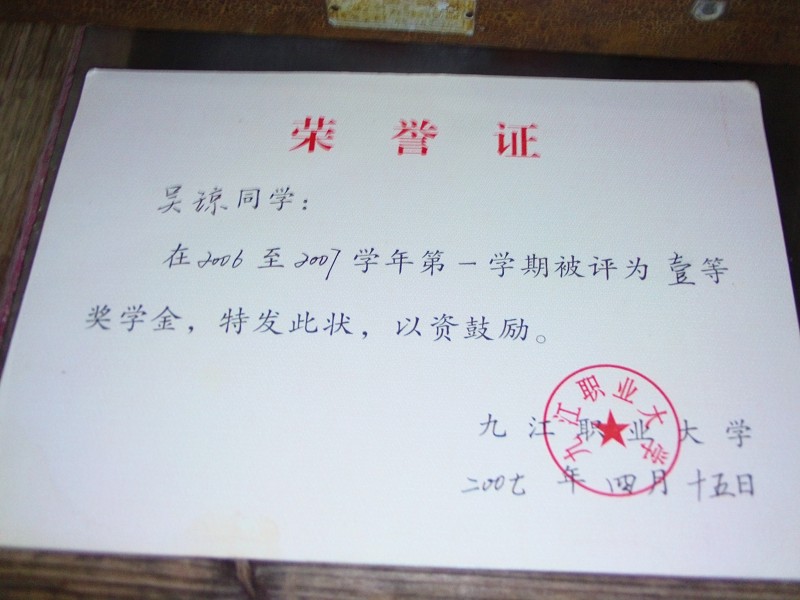 荣誉证
吴琼同学：
在2006至2007学年第一学期被评为壹等
奖学金，特发此状，以资鼓励。
九江职业大学
九江职业大学
二00七年四月十五日